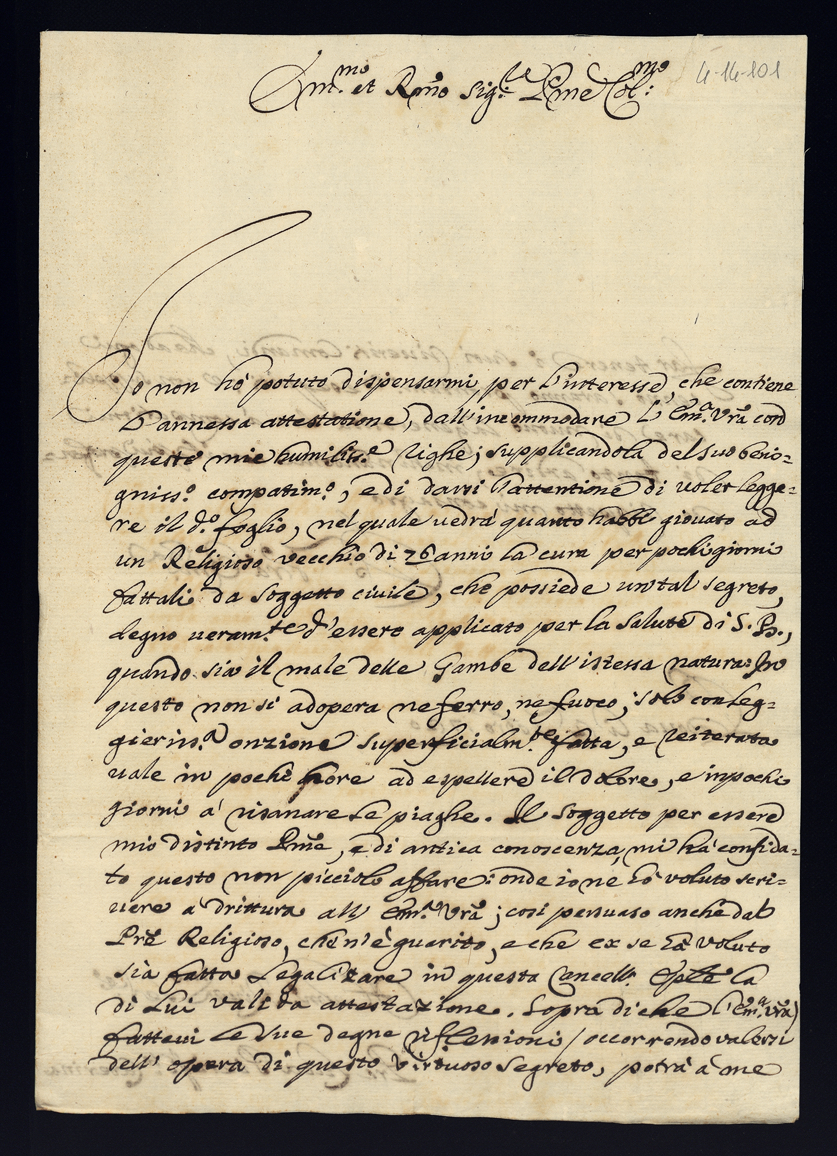 4-14-101
Em.mo et R.mo Sig.re Pne Col.mo
Io non hò potuto dispensarmi, per l'interesse, che contiene
l'annessa attestatione, dall'incommodare l'Em.a Vrã con
queste mie humiliss.e righe; supplicandola del suo beni=
gniss.o compatim.o, e di darsi l'attentione di voler legge=
re il d.o foglio, nel quale vedrà quanto habbi giovato ad
un Religioso vecchio di 76 anni la cura per pochi giorni
fattali da soggetto civile, che possiede un tal segreto,
degno veram.te d'essere applicato per la salute di S. B.,
quando sia il male delle Gambe dell'istessa natura: In
questo non si adopera ne ferro, ne fuoco; solo con leg=
gieriss.a onzione superficialm.te fatta, e reiterata
vale in poche hore ad espellere il dolore, e in pochi
giorni a' risanare le piaghe. Il soggetto per essere
mio distinto Pne, e di antica conoscenza, mi ha confida=
to questo non picciolo affare: onde io ne hò voluto scri=
vere a' drittura all' Em.a Vrã; così persuaso anche dal
Prẽ Religioso, che n'è guarito, e che ex se hà voluto
sia fatta legalizare in questa Cancell. Eple la
di lui valida attestazione. Sopra di che l'Em.a Vrã
fattevi le sue degne riflessioni, occorrendo valersi
dell' opera di questo virtuoso segreto, potrà a me